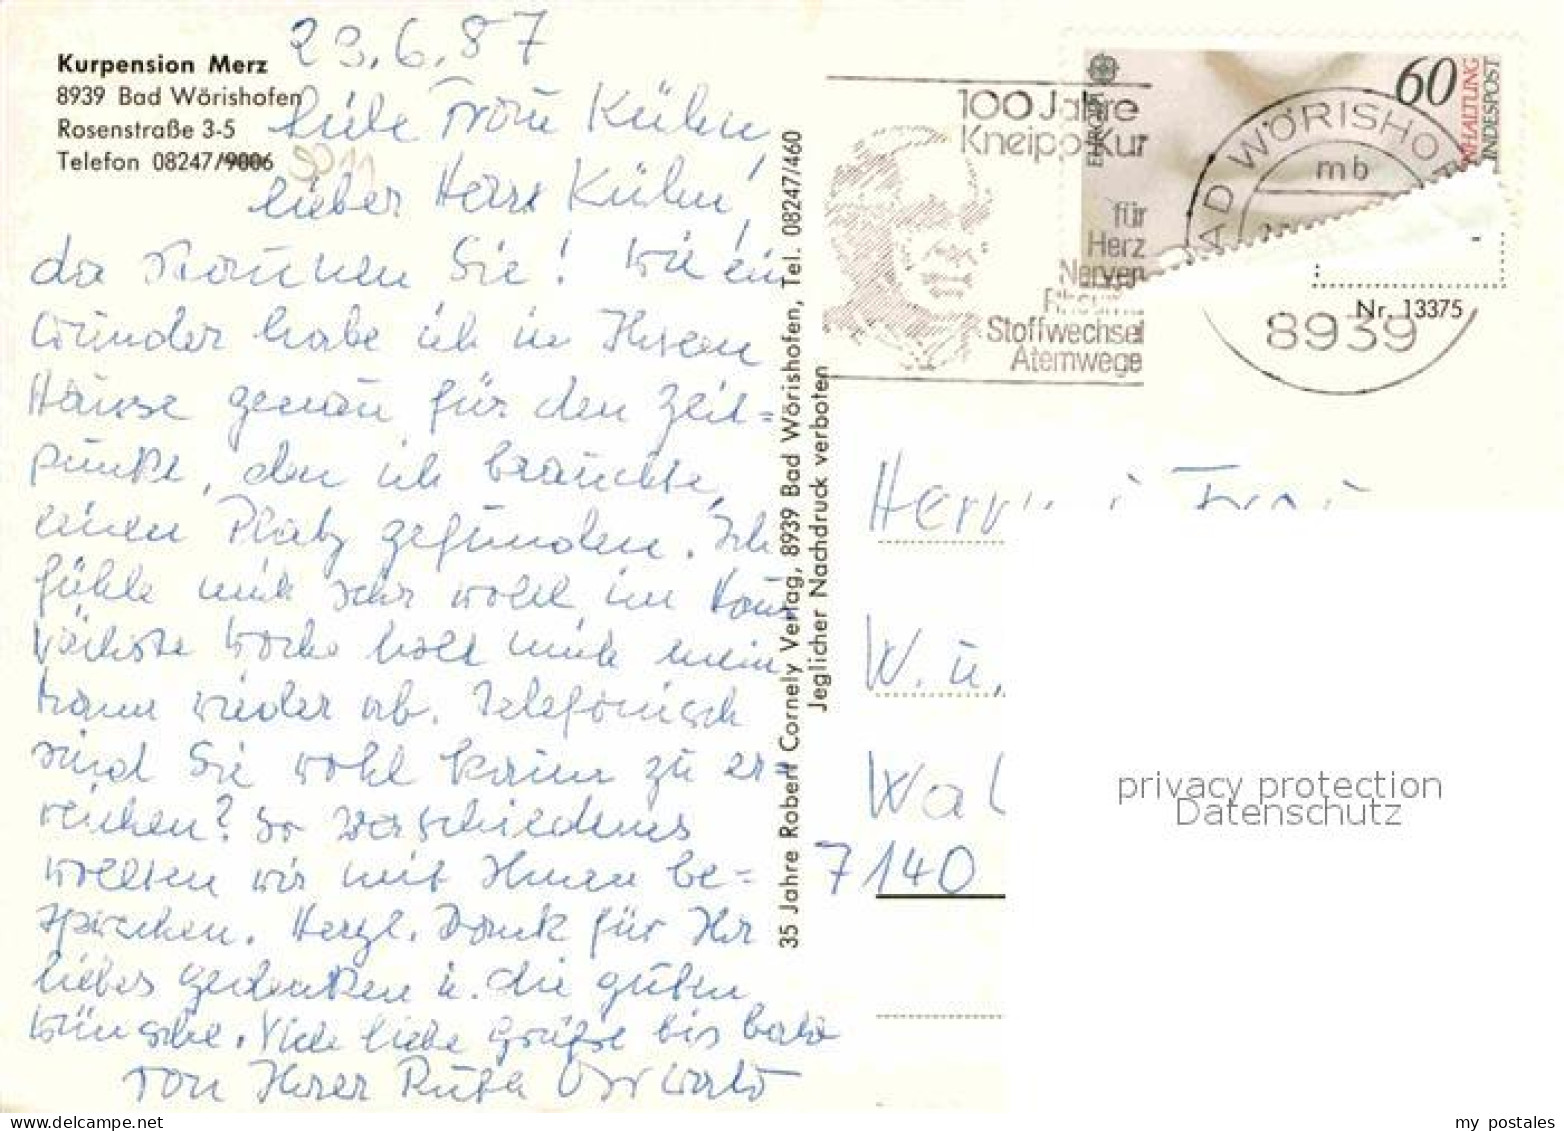 23.6.87
Kurpension Merz
8939 Bad Wörishofen
Rosenstraße 3-5
Telefon 08247/9006
9011
Liebe Frau Kühn,
lieber Herr Kühn,
da staunen Sie! Wie ein
Wunder habe ich in Ihrem
Hause genau für den Zeit=
punkt, den ich brauchte,
einen Platz gefunden. Ich
fühle mich sehr wohl im Haus
Nächste Woche holt mich mein
Mann wieder ab. Telefonisch
sind Sie wohl kaum zu er=
reichen? So Verschiedenes
wollten wir mit Ihnen be=
sprechen. Herzl. Dank für Ihr
liebes Gedenken u. die guten
Wünsche. Viele liebe Grüße bis bald
von Ihrer Ruth
35 Jahre Robert Cornely Verlag, 8939 Bad Wörishofen, Tel. 08247/460
Jeglicher Nachdruck verboten
100 Jahre
Kneipp-Kur
für
Herz
Nerven
Stoffwechsel
Atemwege
EUROPA
60
BAD WÖRISHOF
mb
8939
Nr. 13375
Herrn u. Frau
W. u.
Wal
7140
privacy protection
Datenschutz
my postales